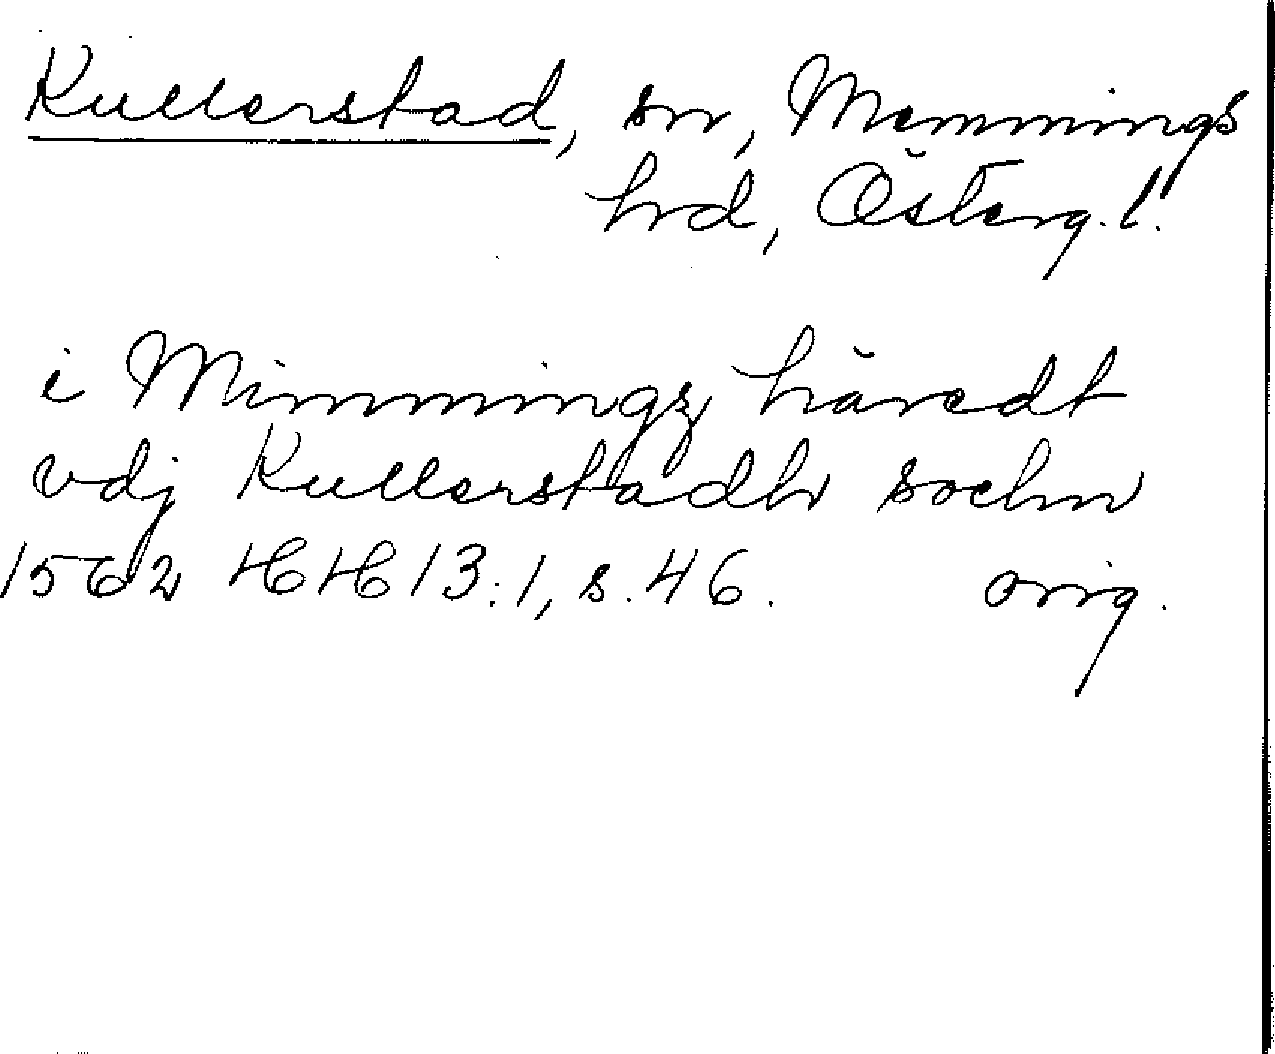 Kullerstad, sn, Memmings
hrd, Österg. l.
i Mimmingz häredt
vdj Kullerstadh sochn
1562 HH 13:1, s. 46. orig.